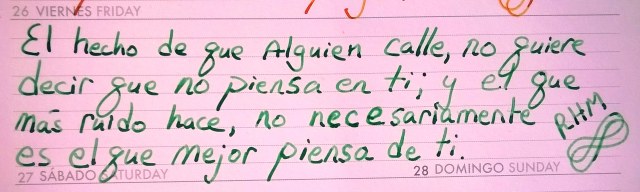 26 VIERNES FRIDAY
El hecho de que Alguien calle, no quiere
decir que no piensa en ti; y el que
más ruido hace, no necesariamente
es el que mejor piensa de ti.
RHM
27 SÁBADO SATURDAY
28 DOMINGO SUNDAY